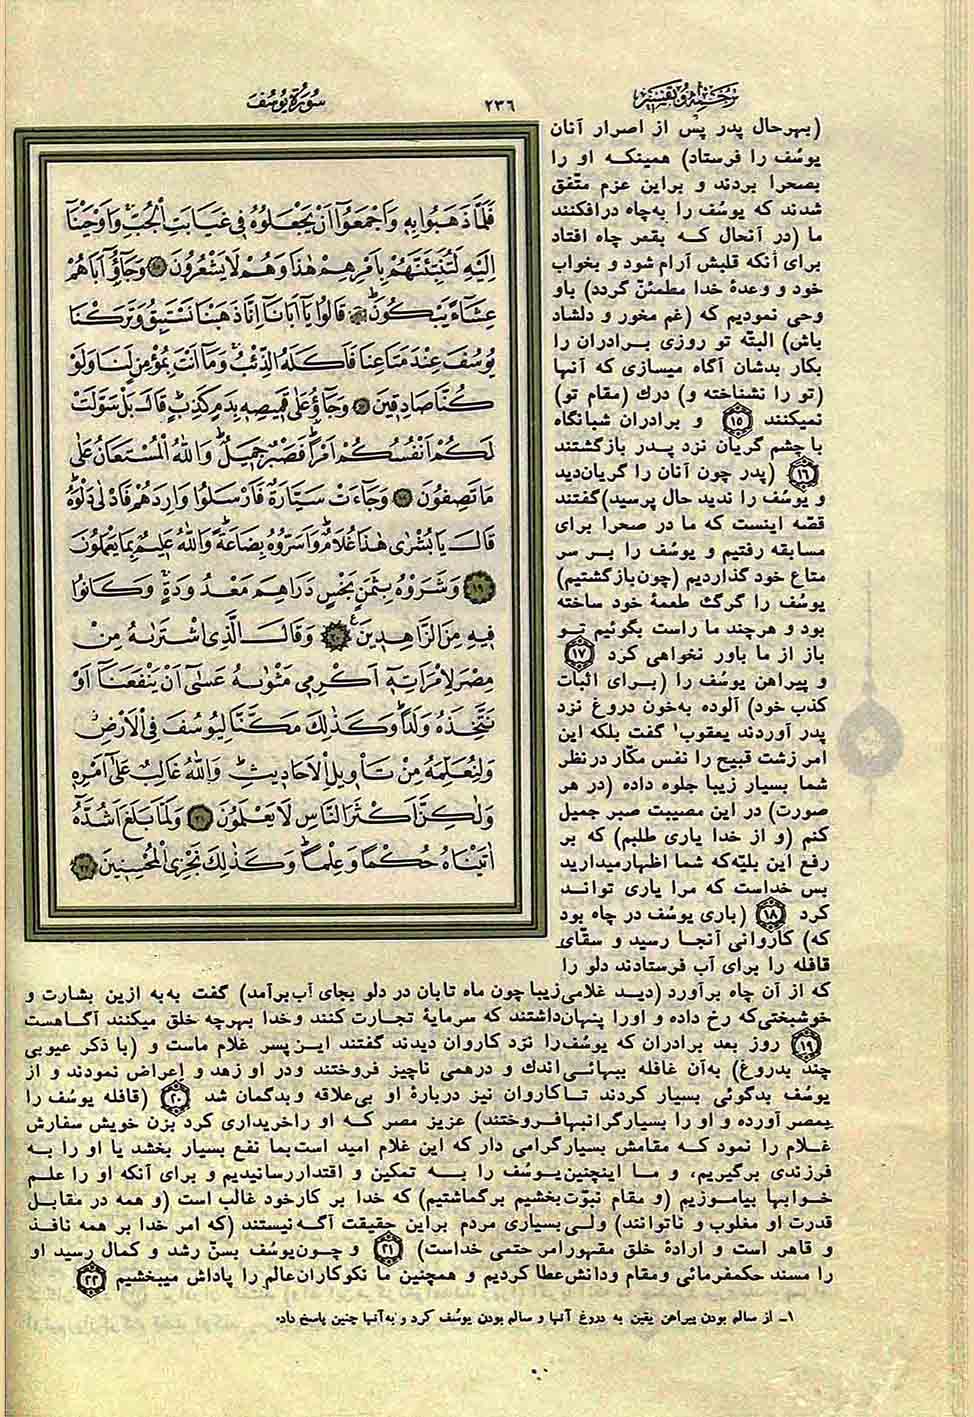 سورة يوسف
٢٣٦
ترجمه و تفسير
فَلَمَّا ذَهَبُوا بِهِ وَاَجْمَعُوٓا اَنْ يَجْعَلُوهُ فِى غَيَابَتِ الْجُبِّ وَاَوْحَيْنَآ
اِلَيْهِ لَتُنَبِّئَنَّهُمْ بِاَمْرِهِمْ هٰذَا وَهُمْ لَا يَشْعُرُونَ ١٥ وَجَآؤُ اَبَاهُمْ
عِشَآءً يَبْكُونَ ١٦ قَالُوا يَآ اَبَانَآ اِنَّا ذَهَبْنَا نَسْتَبِقُ وَتَرَكْنَا
يُوسُفَ عِنْدَ مَتَاعِنَا فَاَكَلَهُ الذِّئْبُ وَمَآ اَنْتَ بِمُؤْمِنٍ لَنَا وَلَوْ
كُنَّا صَادِقِينَ ١٧ وَجَآؤُ عَلٰى قَمِيصِهِ بِدَمٍ كَذِبٍ قَالَ بَلْ سَوَّلَتْ
لَكُمْ اَنْفُسُكُمْ اَمْرًا فَصَبْرٌ جَمِيلٌ وَاللّٰهُ الْمُسْتَعَانُ عَلٰى
مَا تَصِفُونَ ١٨ وَجَآءَتْ سَيَّارَةٌ فَاَرْسَلُوا وَارِدَهُمْ فَاَدْلٰى دَلْوَهُ
قَالَ يَا بُشْرٰى هٰذَا غُلَامٌ وَاَسَرُّوهُ بِضَاعَةً وَاللّٰهُ عَلِيمٌ بِمَا يَعْمَلُونَ
١٩ وَشَرَوْهُ بِثَمَنٍ بَخْسٍ دَرَاهِمَ مَعْدُودَةٍ وَكَانُوا
فِيهِ مِنَ الزَّاهِدِينَ ٢٠ وَقَالَ الَّذِى اشْتَرٰيهُ مِنْ
مِصْرَ لِامْرَاَتِهِ اَكْرِمِى مَثْوٰيهُ عَسٰى اَنْ يَنْفَعَنَآ اَوْ
نَتَّخِذَهُ وَلَدًا وَكَذٰلِكَ مَكَّنَّا لِيُوسُفَ فِى الْاَرْضِ
وَلِنُعَلِّمَهُ مِنْ تَاْوِيلِ الْاَحَادِيثِ وَاللّٰهُ غَالِبٌ عَلٰى اَمْرِهِ
وَلٰكِنَّ اَكْثَرَ النَّاسِ لَا يَعْلَمُونَ ٢١ وَلَمَّا بَلَغَ اَشُدَّهُ
اٰتَيْنَاهُ حُكْمًا وَعِلْمًا وَكَذٰلِكَ نَجْزِى الْمُحْسِنِينَ ٢٢
(بهرحال پدر پس از اصرار آنان
یوسُف را فرستاد) همینکه او را
بصحرا بردند و براین عزم متّفق
شدند که یوسُف را به‌چاه درافکنند
ما (در آنحال که بقعر چاه افتاد
برای آنکه قلبش آرام شود و بخواب
خود و وعدهٔ خدا مطمئنّ گردد) باو
وحی نمودیم که (غم مخور و دلشاد
باش) البتّه تو روزی برادران را
بکار بدشان آگاه میسازی که آنها
(تو را نشناخته و) درك (مقام تو)
نمیکنند ۱۵ و برادران شبانگاه
با چشم گریان نزد پدر بازگشتند
۱۶ (پدر چون آنان را گریان‌دید
و یوسُف را ندید حال پرسید)گفتند
قصّه اینست که ما در صحرا برای
مسابقه رفتیم و یوسُف را بر سر
متاع خود گذاردیم (چون‌بازگشتیم)
یوسُف را گرگ طعمهٔ خود ساخته
بود و هرچند ما راست بگوئیم تو
باز از ما باور نخواهی کرد ۱۷
و پیراهن یوسُف را (برای اثبات
کذب خود) آلوده به‌خون دروغ نزد
پدر آوردند یعقوب۱ گفت بلکه این
امر زشت قبیح را نفس مکّار درنظر
شما بسیار زیبا جلوه داده (در هر
صورت) در این مصیبت صبر جمیل
کنم (و از خدا یاری طلبم) که بر
رفع این بلیّه‌که شما اظهارمیدارید
بس خداست که مرا یاری تواند
کرد ۱۸ (باری یوسُف در چاه بود
که) کاروانی آنجا رسید و سقّای
قافله را برای آب فرستادند دلو را
که از آن چاه برآورد (دید غلامی‌زیبا چون ماه تابان در دلو بجای آب‌برآمد) گفت به‌به ازین بشارت و
خوشبختی‌که رخ داده و اورا پنهان‌داشتند که سرمایهٔ تجارت کنند وخدا بهرچه خلق میکنند آگاهست
۱۹ روز بعد برادران که یوسُف‌را نزد کاروان دیدند گفتند این‌پسر غلام ماست و (با ذکر عیوبی
چند بدروغ) به‌آن قافله ببهائی‌اندك و درهمی ناچیز فروختند ودر او زهد و اعراض نمودند و از
یوسُف بدگوئی بسیار کردند تاکاروان نیز دربارهٔ او بی‌علاقه وبدگمان شد ۲۰ (قافله یوسُف را
بمصر آورده و او را بسیارگرانبهافروختند) عزیز مصر که او راخریداری کرد بزن خویش سفارش
غلام را نمود که مقامش بسیارگرامی دار که این غلام امید است‌بما نفع بسیار بخشد یا او را به
فرزندی برگیریم، و ما اینچنین‌یوسُف را به تمکین و اقتداررسانیدیم و برای آنکه او را علم
خوابها بیاموزیم (و مقام نبوّت‌بخشیم برگماشتیم) که خدا بر کارخود غالب است (و همه در مقابل
قدرت او مغلوب و ناتوانند) ولی‌بسیاری مردم براین حقیقت آگه‌نیستند (که امر خدا بر همه نافذ
و قاهر است و ارادهٔ خلق مقهورامر حتمی خداست) ۲۱ و چون‌یوسُف بسنّ رشد و کمال رسید او
را مسند حکمفرمائی ومقام ودانش‌عطا کردیم و همچنین ما نکوکاران‌عالم را پاداش میبخشیم ۲۲
۱ـ از سالم بودن پیراهن یقین به دروغ آنها و سالم بودن یوسُف کرد و به‌آنها چنین پاسخ داد.